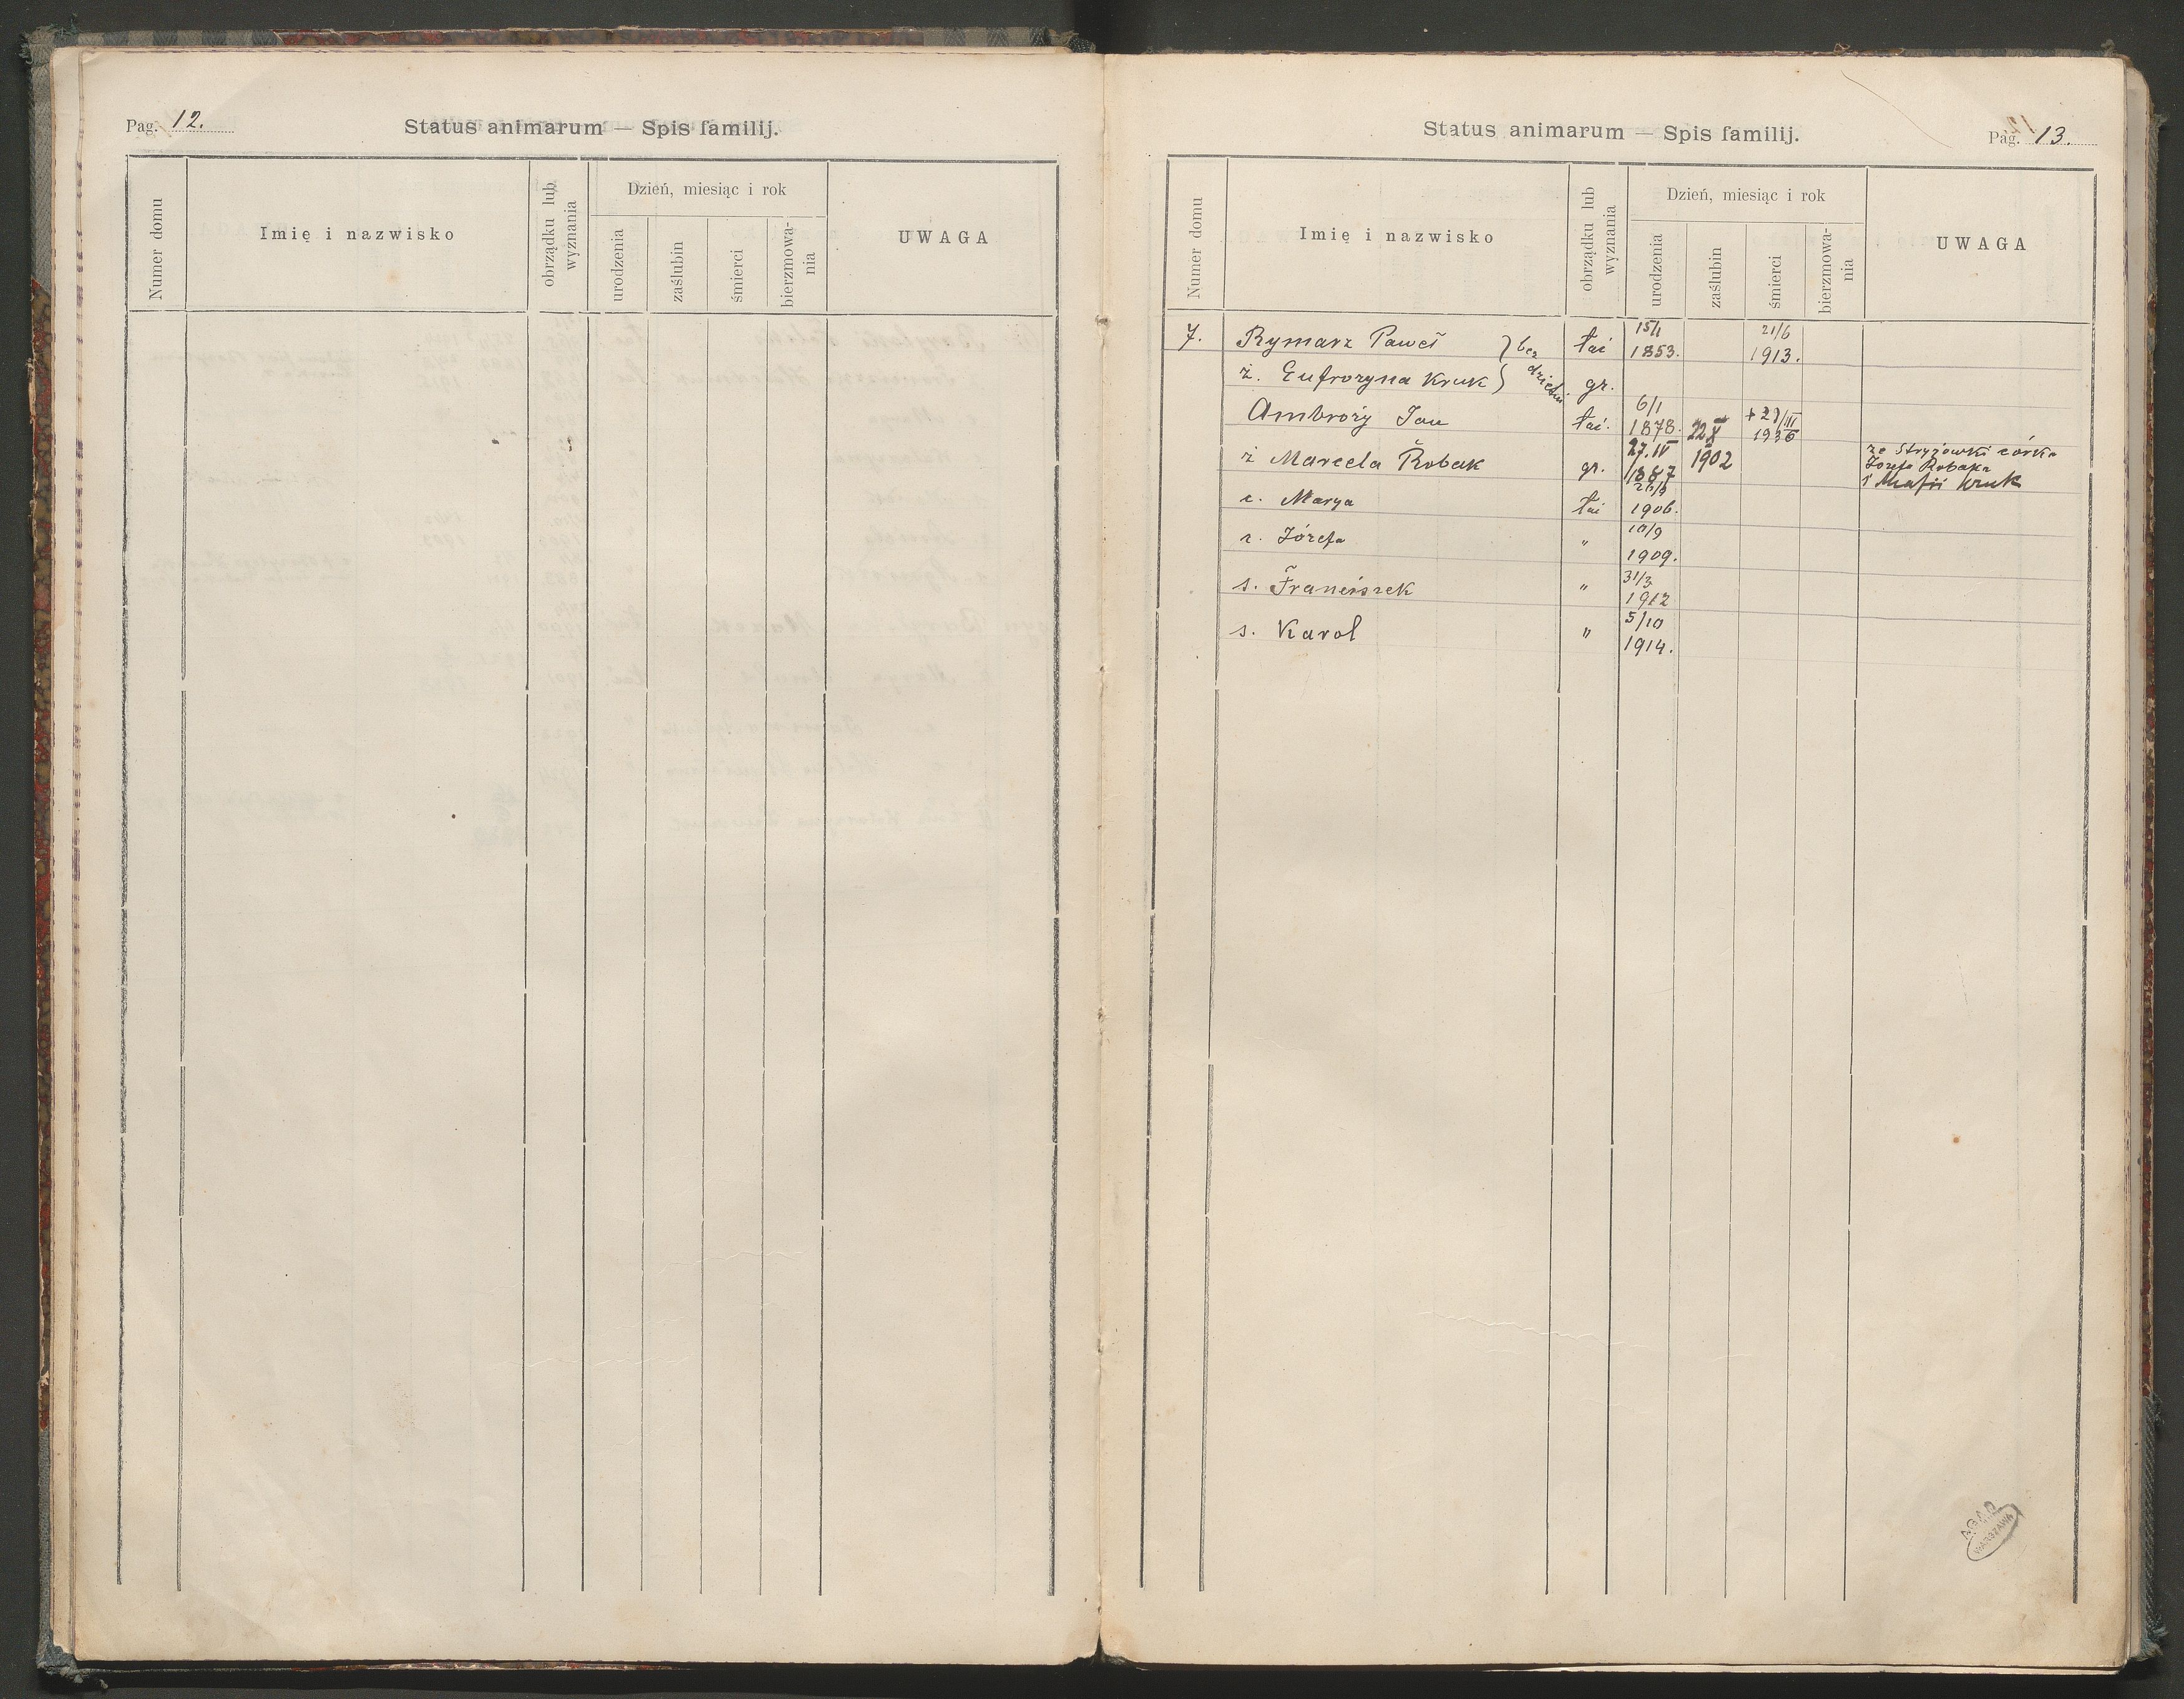 Pag. 12.
Status animarum — Spis familij.
Numer domu
Imię i nazwisko
obrządku lub wyznania
Dzień, miesiąc i rok
urodzenia
zaślubin
śmierci
bierzmowa-
nia
UWAGA
Status animarum — Spis familij.
Pag. 13.
Numer domu
Imię i nazwisko
obrządku lub wyznania
Dzień, miesiąc i rok
urodzenia
zaślubin
śmierci
bierzmowa-
nia
UWAGA
7. Rymarz Paweł } bez dzietni łać 15/1 1853. 21/6 1913.
ż. Eufrozyna Kruk gr.
Ambroży Jan łać. 6/1 1878. 22 X 1902 + 29/III 1936
ż Marcela Robak gr. 27.IV 1887 ze Stryjówki córka
Józefa Robaka
i Marji Kruk
c. Marya łać 1906.
c. Józefa " 10/9 1909.
s. Franciszek " 31/3 1912
s. Karol " 5/10 1914.
AGAD
WARSZAWA